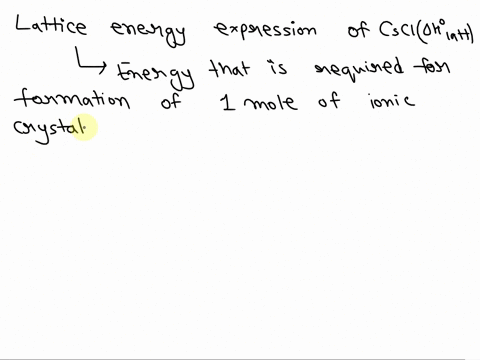 Lattice energy expression of CsCl(ΔH°latt)
↳ Energy that is required for
formation of 1 mole of ionic
crystal